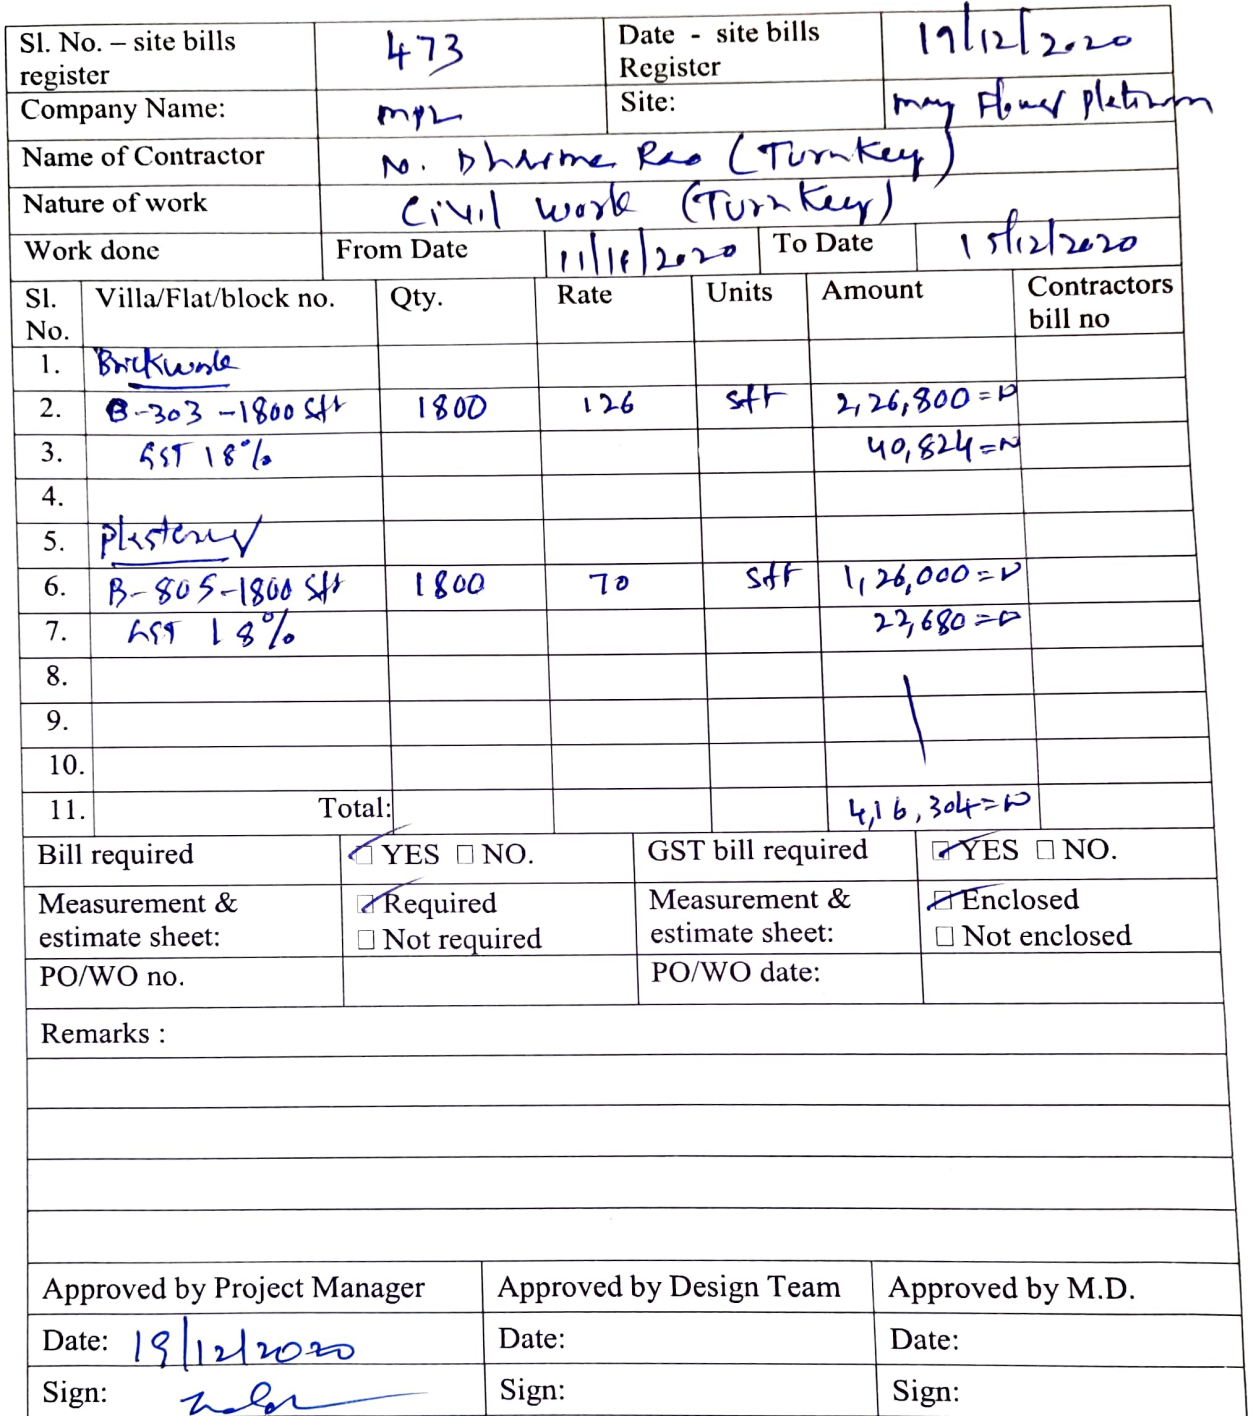 Sl. No. – site bills register 473 Date - site bills Register 19/12/2020
Company Name: mpl Site: may Flower Platinum
Name of Contractor N. Dharma Rao (Turnkey)
Nature of work Civil work (Turnkey)
Work done From Date 2020 To Date 15/12/2020
Sl. No. Villa/Flat/block no. Qty. Rate Units Amount Contractors bill no
1. Brickwork
2. B-303 -1800 sft 1800 126 sft 2,26,800=
3. GST 18% 40,824=
4.
5. Plastering
6. B-805-1800 sft 1800 70 sft 1,26,000=
7. GST 18% 22,680=
8.
9.
10.
11. Total: 4,16,304=
Bill required ☑ YES ☐ NO. GST bill required ☑ YES ☐ NO.
Measurement & estimate sheet: ☑ Required ☐ Not required Measurement & estimate sheet: ☑ Enclosed ☐ Not enclosed
PO/WO no. PO/WO date:
Remarks :
Approved by Project Manager Approved by Design Team Approved by M.D.
Date: 19/12/2020 Date: Date:
Sign: Sign: Sign: